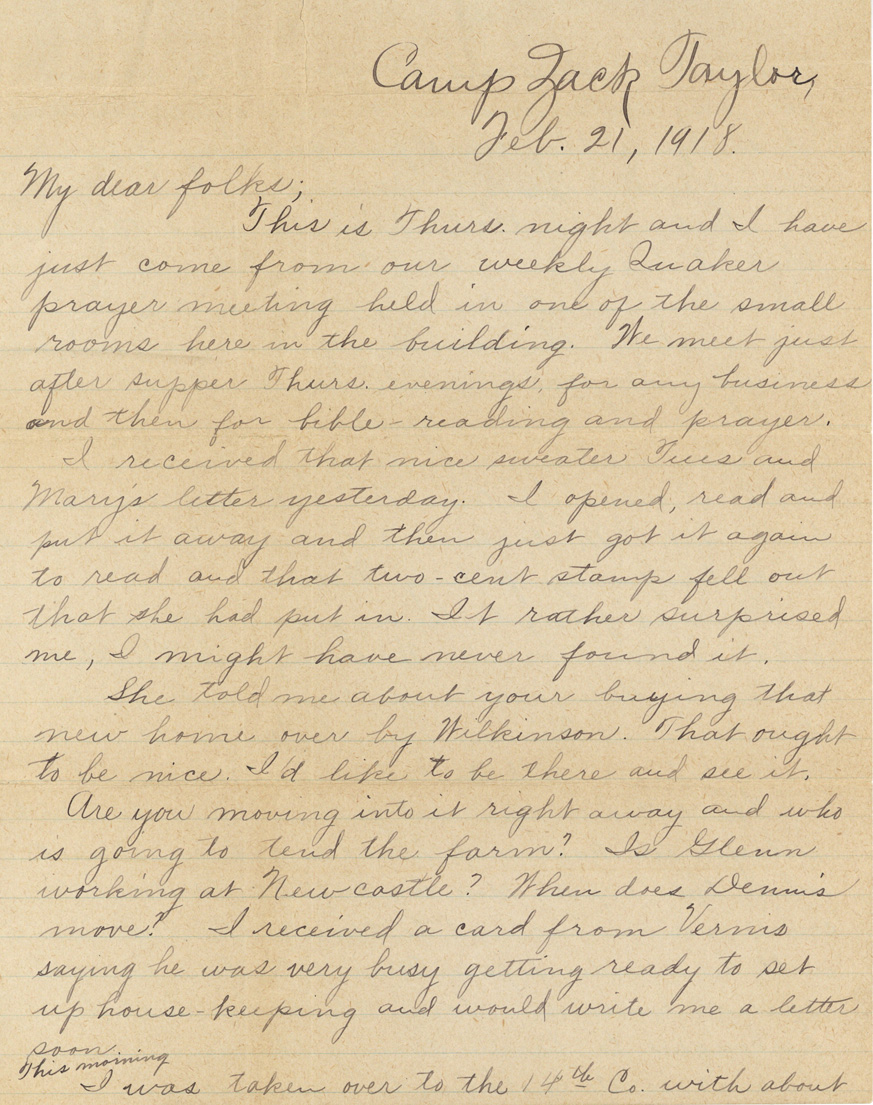 Camp Zack Taylor,
Feb. 21, 1918.
My dear folks;
This is Thurs. night and I have
just come from our weekly Quaker
prayer meeting held in one of the small
rooms here in the building. We meet just
after supper Thurs. evenings, for any business
and then for bible-reading and prayer.
I received that nice sweater Tues and
Mary's letter yesterday. I opened, read and
put it away and then just got it again
to read and that two-cent stamp fell out
that she had put in. It rather surprised
me, I might have never found it.
She told me about your buying that
new home over by Wilkinson. That ought
to be nice. I'd like to be there and see it.
Are you moving into it right away and who
is going to tend the farm? Is Glenn
working at Newcastle? When does Dennis
move? I received a card from Verms
saying he was very busy getting ready to set
up house-keeping and would write me a letter
soon.
This morning
I was taken over to the 14th Co. with about